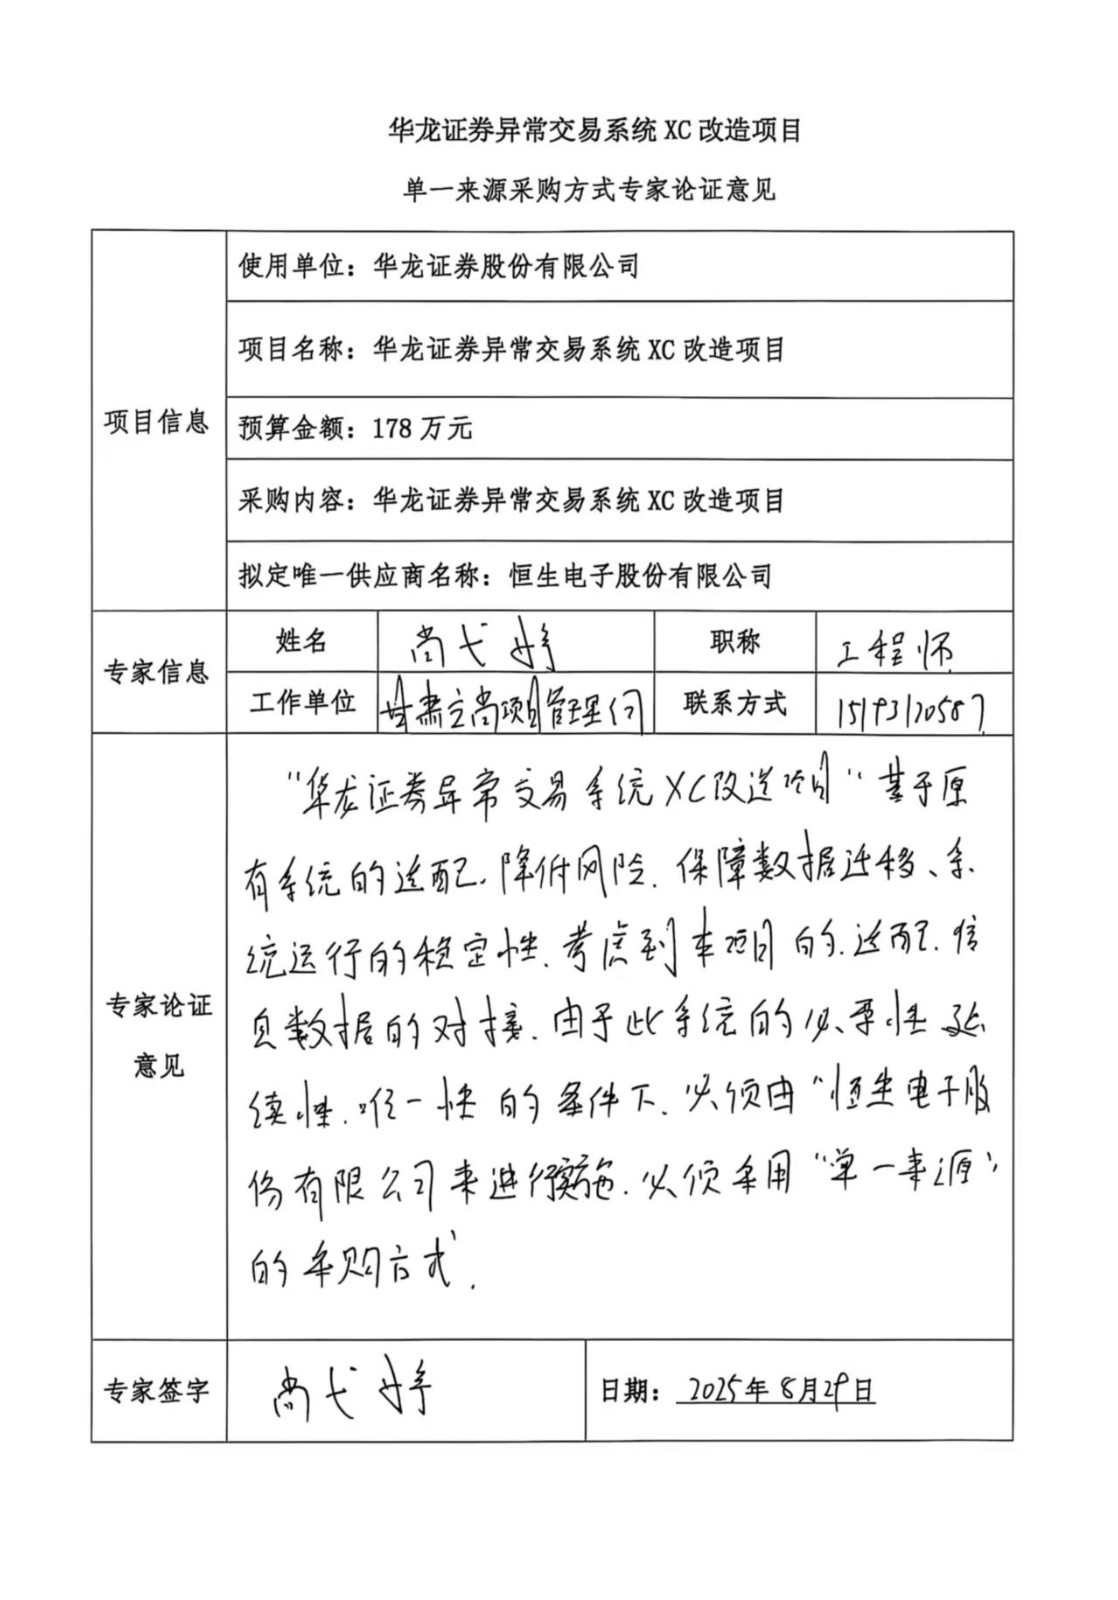 华龙证券异常交易系统 XC 改造项目
单一来源采购方式专家论证意见
项目信息
使用单位：华龙证券股份有限公司
项目名称：华龙证券异常交易系统 XC 改造项目
预算金额：178 万元
采购内容：华龙证券异常交易系统 XC 改造项目
拟定唯一供应商名称：恒生电子股份有限公司
专家信息
姓名 尚弋婷 职称 工程师
工作单位 甘肃立尚项目管理公司 联系方式
专家论证
意见
“华龙证券异常交易系统XC改造项目“基于原
有系统的适配.降低风险.保障数据迁移、系
统运行的稳定性.考虑到本项目的.适配.信
息数据的对接.由于此系统的必要性延
续性.唯一性的条件下.必须由“恒生电子股
份有限公司来进行实施.必须采用“单一来源”
的采购方式.
专家签字
尚弋婷
日期：2025年8月29日